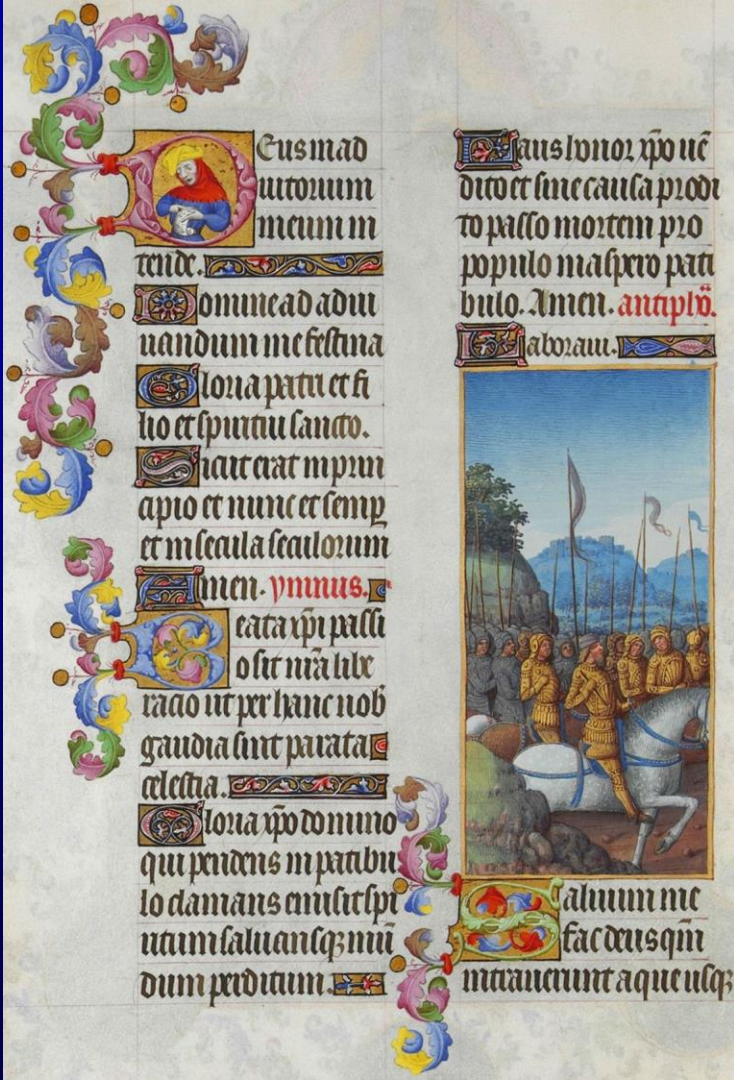 Deus in ad
iutorium
meum in
tende.
Domine ad adiu
uandum me festina
Gloria patri et fi
lio et spiritui sancto.
Sicut erat in prin
cipio et nunc et semp
et in secula seculorum
Amen. ymnus.
Beata xpi passi
o sit nra libe
racio ut per hanc nob
gaudia sint parata
celestia.
Gloria xpo domino
qui pendens in patibu
lo clamans emisit spi
ritum saluansq; mū
dum perditum.
Laus honor xpo uē
dito et sine causa prodi
to passo mortem pro
populo in aspero pati
bulo. Amen. antiphō.
Laboraui.
Saluum me
fac deus qm̄
intrauerunt aque usq;